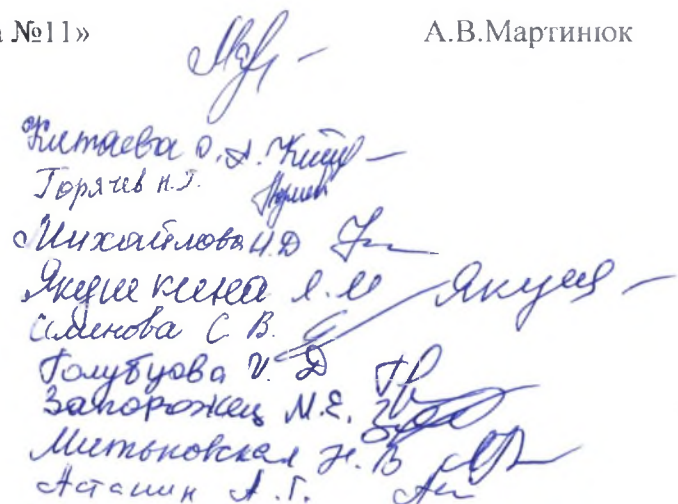 №11» А.В.Мартинюк
Китаева О.А.
Горячев Н.Г.
Михайлова И.Д
Якушкина Л.М Якуш
С В.
Голубцова И. Д
Запорожец М.Е.
Митьковская Н. В
Асташин А.Г.